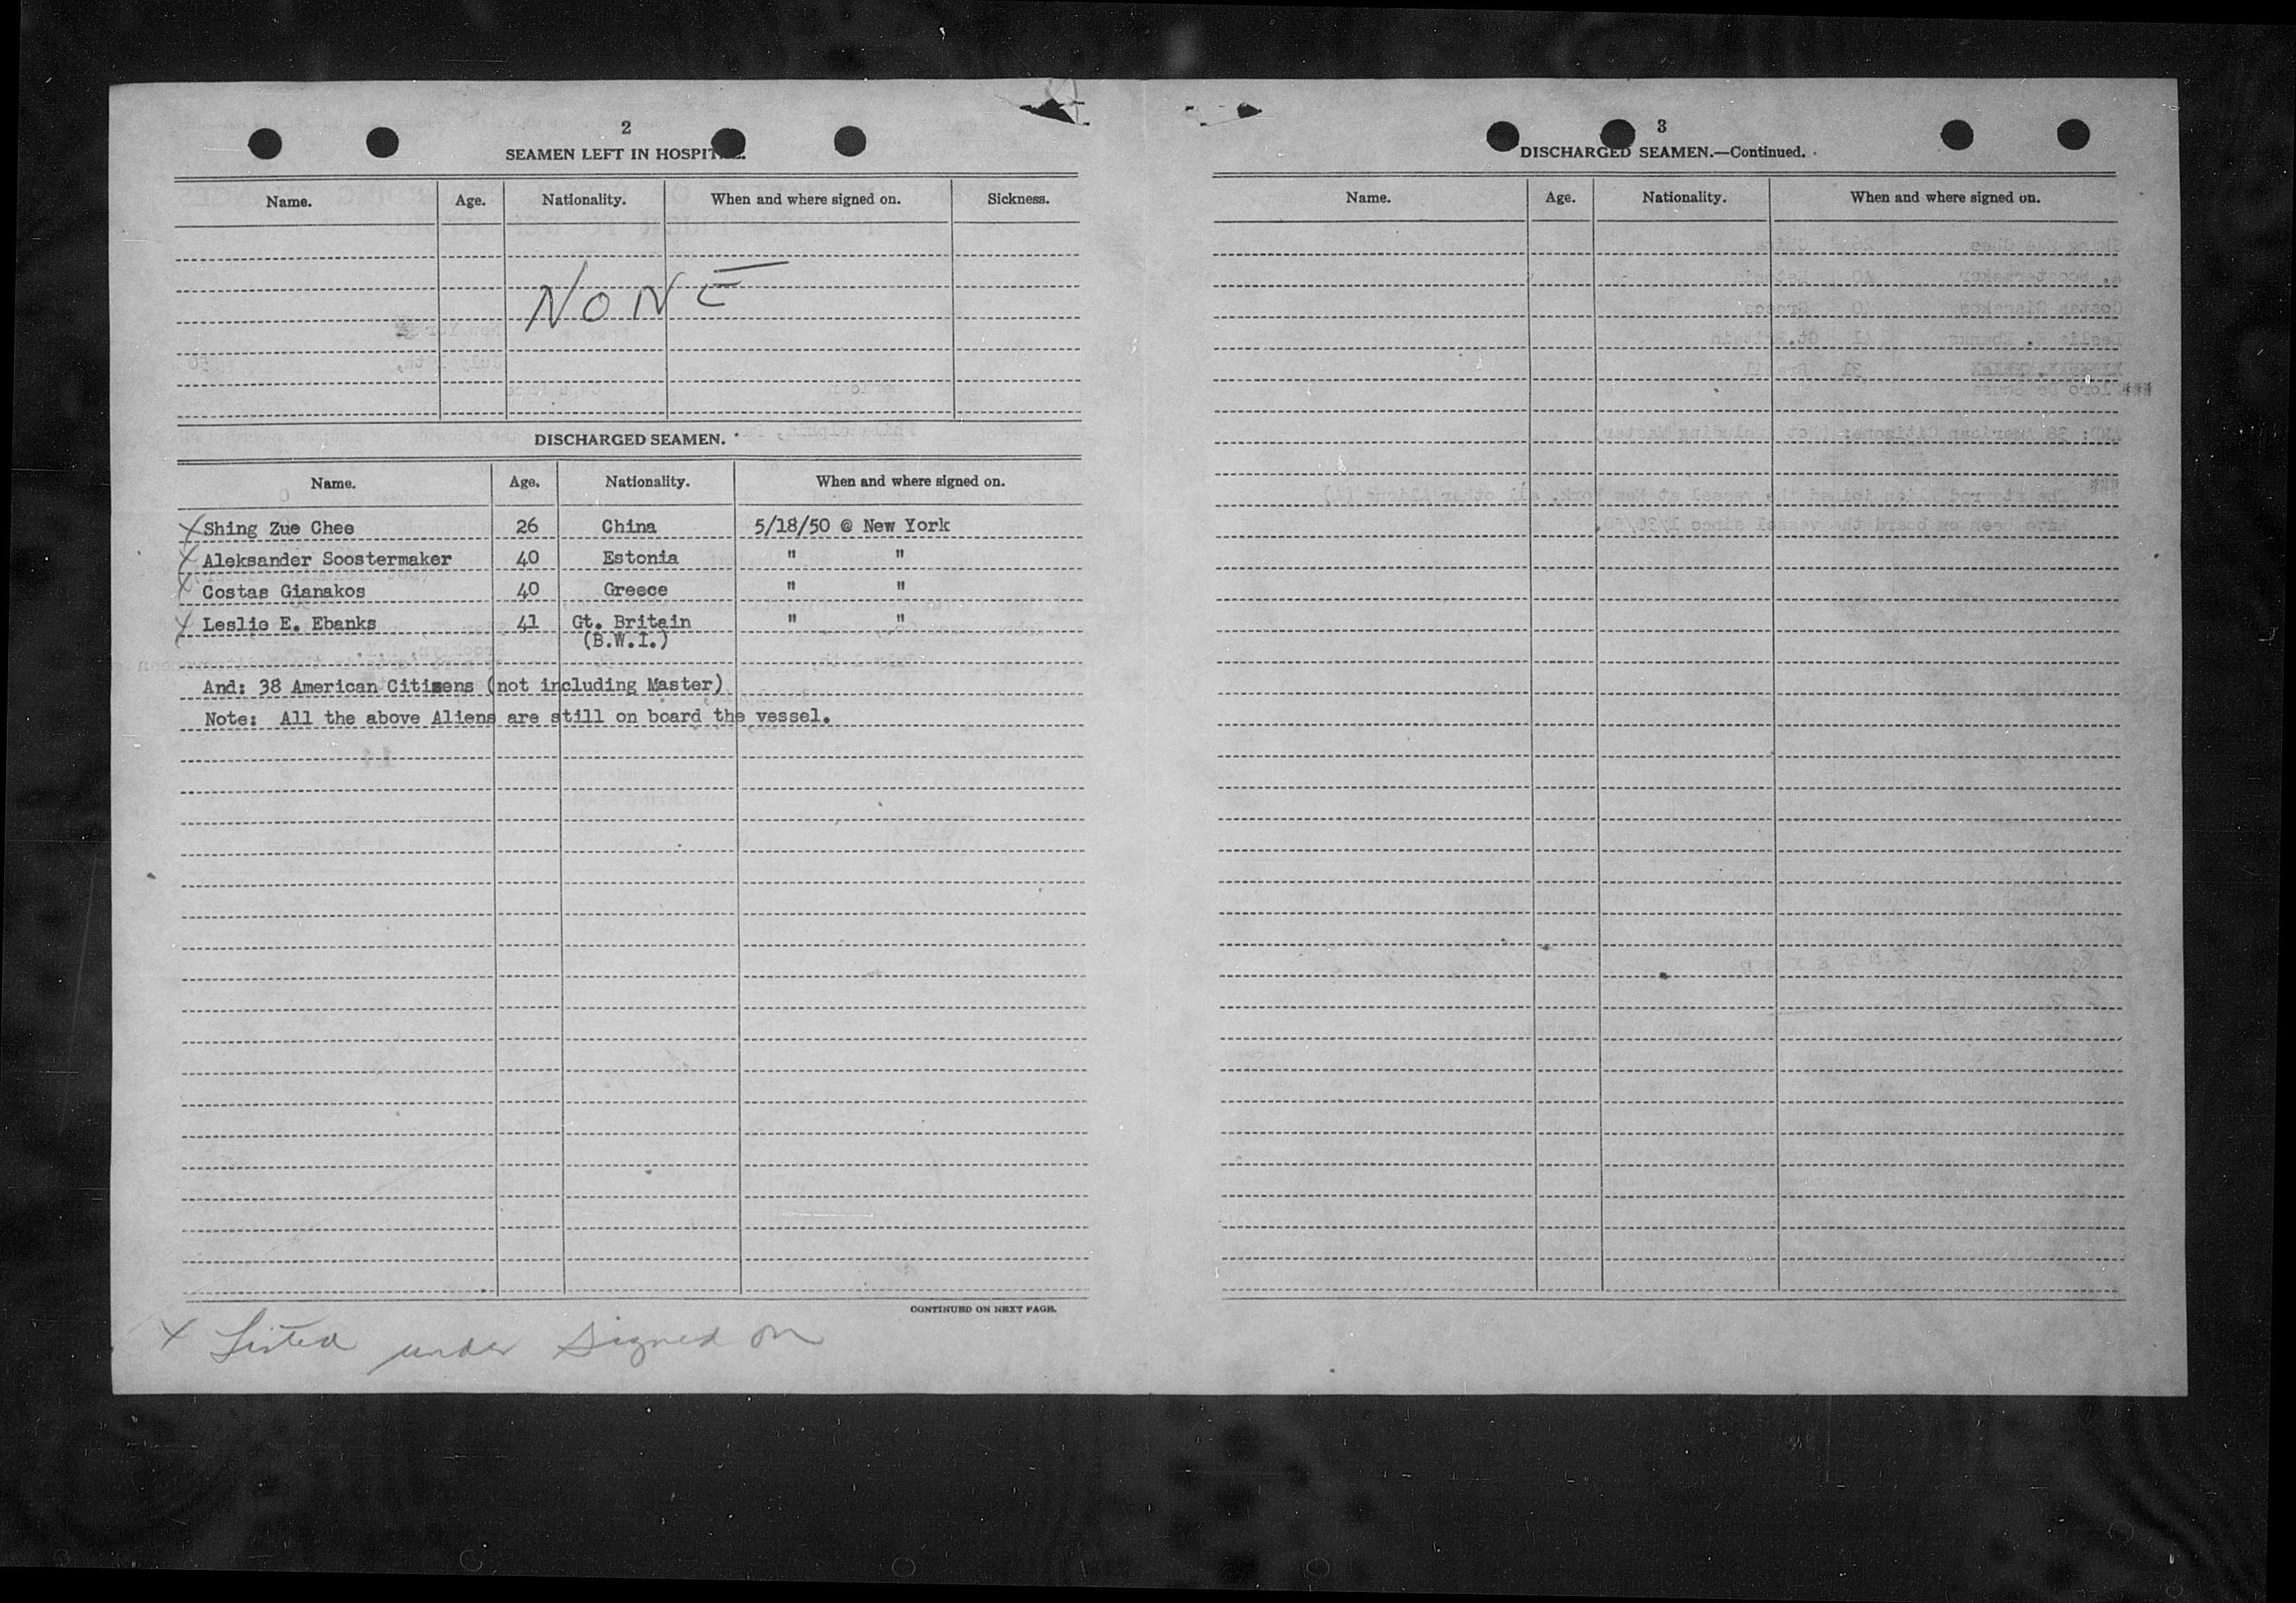 2
SEAMEN LEFT IN HOSPITAL.
Name. Age. Nationality. When and where signed on. Sickness.
NONE
DISCHARGED SEAMEN.
Name. Age. Nationality. When and where signed on.
X Shing Zue Chee 26 China 5/18/50 @ New York
X Aleksander Soostermaker 40 Estonia " "
X Costas Gianakos 40 Greece " "
X Leslie E. Ebanks 41 Gt. Britain " "
(B.W.I.)
And: 38 American Citizens (not including Master)
Note: All the above Aliens are still on board the vessel.
CONTINUED ON NEXT PAGE.
X Listed under signed on
3
DISCHARGED SEAMEN.—Continued.
Name. Age. Nationality. When and where signed on.